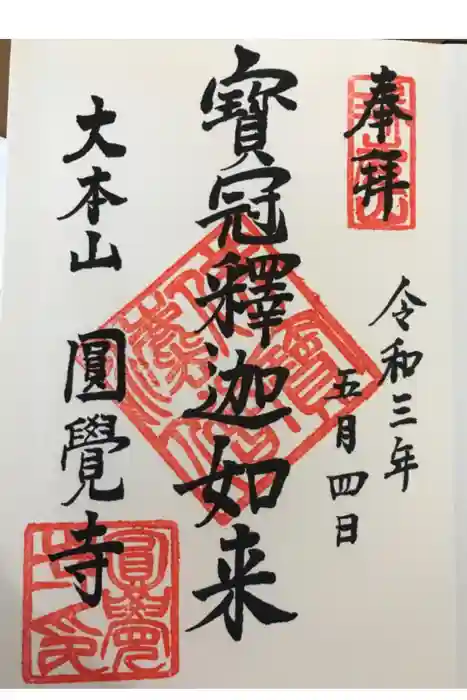 奉拜
令和三年
五月四日
寶冠釋迦如来
大本山 圓覺寺